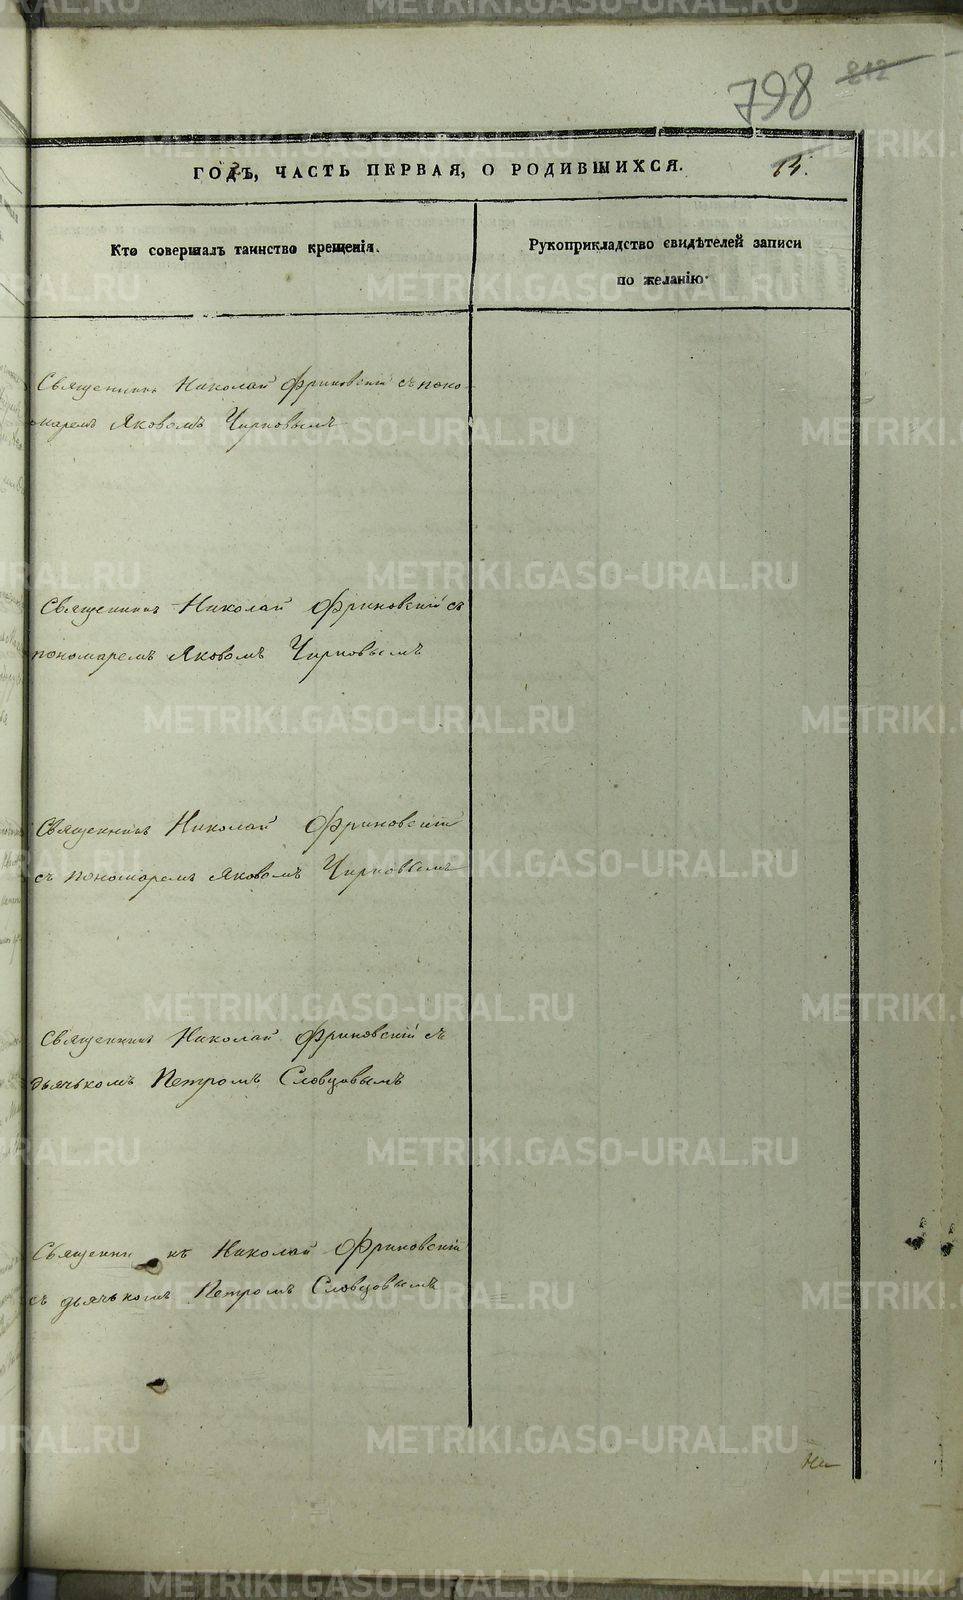 798 212
ГОДЪ, ЧАСТЬ ПЕРВАЯ, О РОДИВШИХСЯ. 14.
Кто совершалъ таинство крещенія.
Рукоприкладство свидѣтелей записи
по желанію.
Священникъ Николай Фриновскій съ поно-
маремъ Яковомъ Чирковымъ
Священникъ Николай Фриновскій съ
пономаремъ Яковомъ Чирковымъ
Священникъ Николай Фриновскій
съ пономаремъ Яковомъ Чирковымъ
Священникъ Николай Фриновскій съ
дьячькомъ Петромъ Словцовымъ
Священникъ Николай Фриновскій
съ дьячькомъ Петромъ Словцовымъ
METRIKI.GASO-URAL.RU